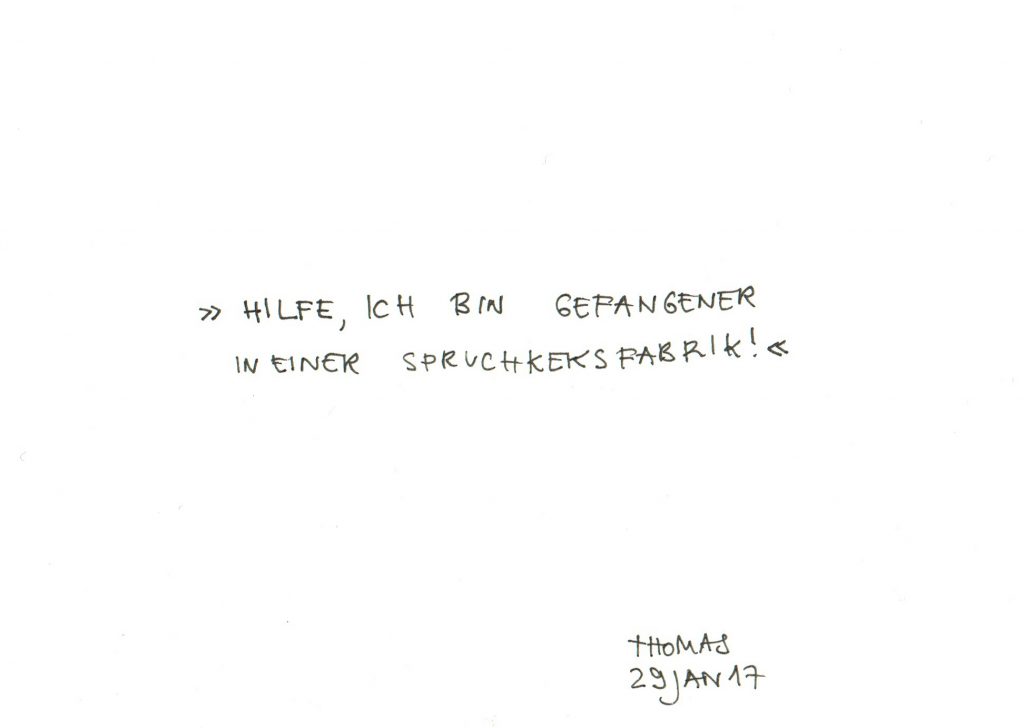 » HILFE, ICH BIN GEFANGENER
IN EINER SPRUCHKEKSFABRIK! «
THOMAS
29 JAN 17